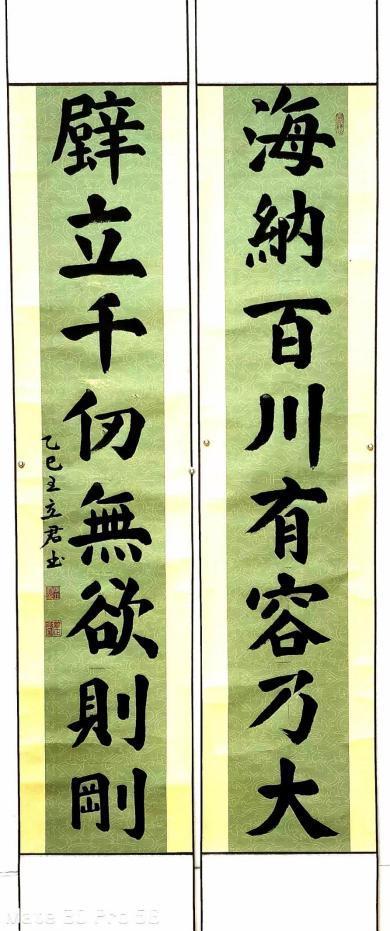 海納百川有容乃大
壁立千仞無欲則剛
乙巳王立君书
Mate 60 Pro 5G